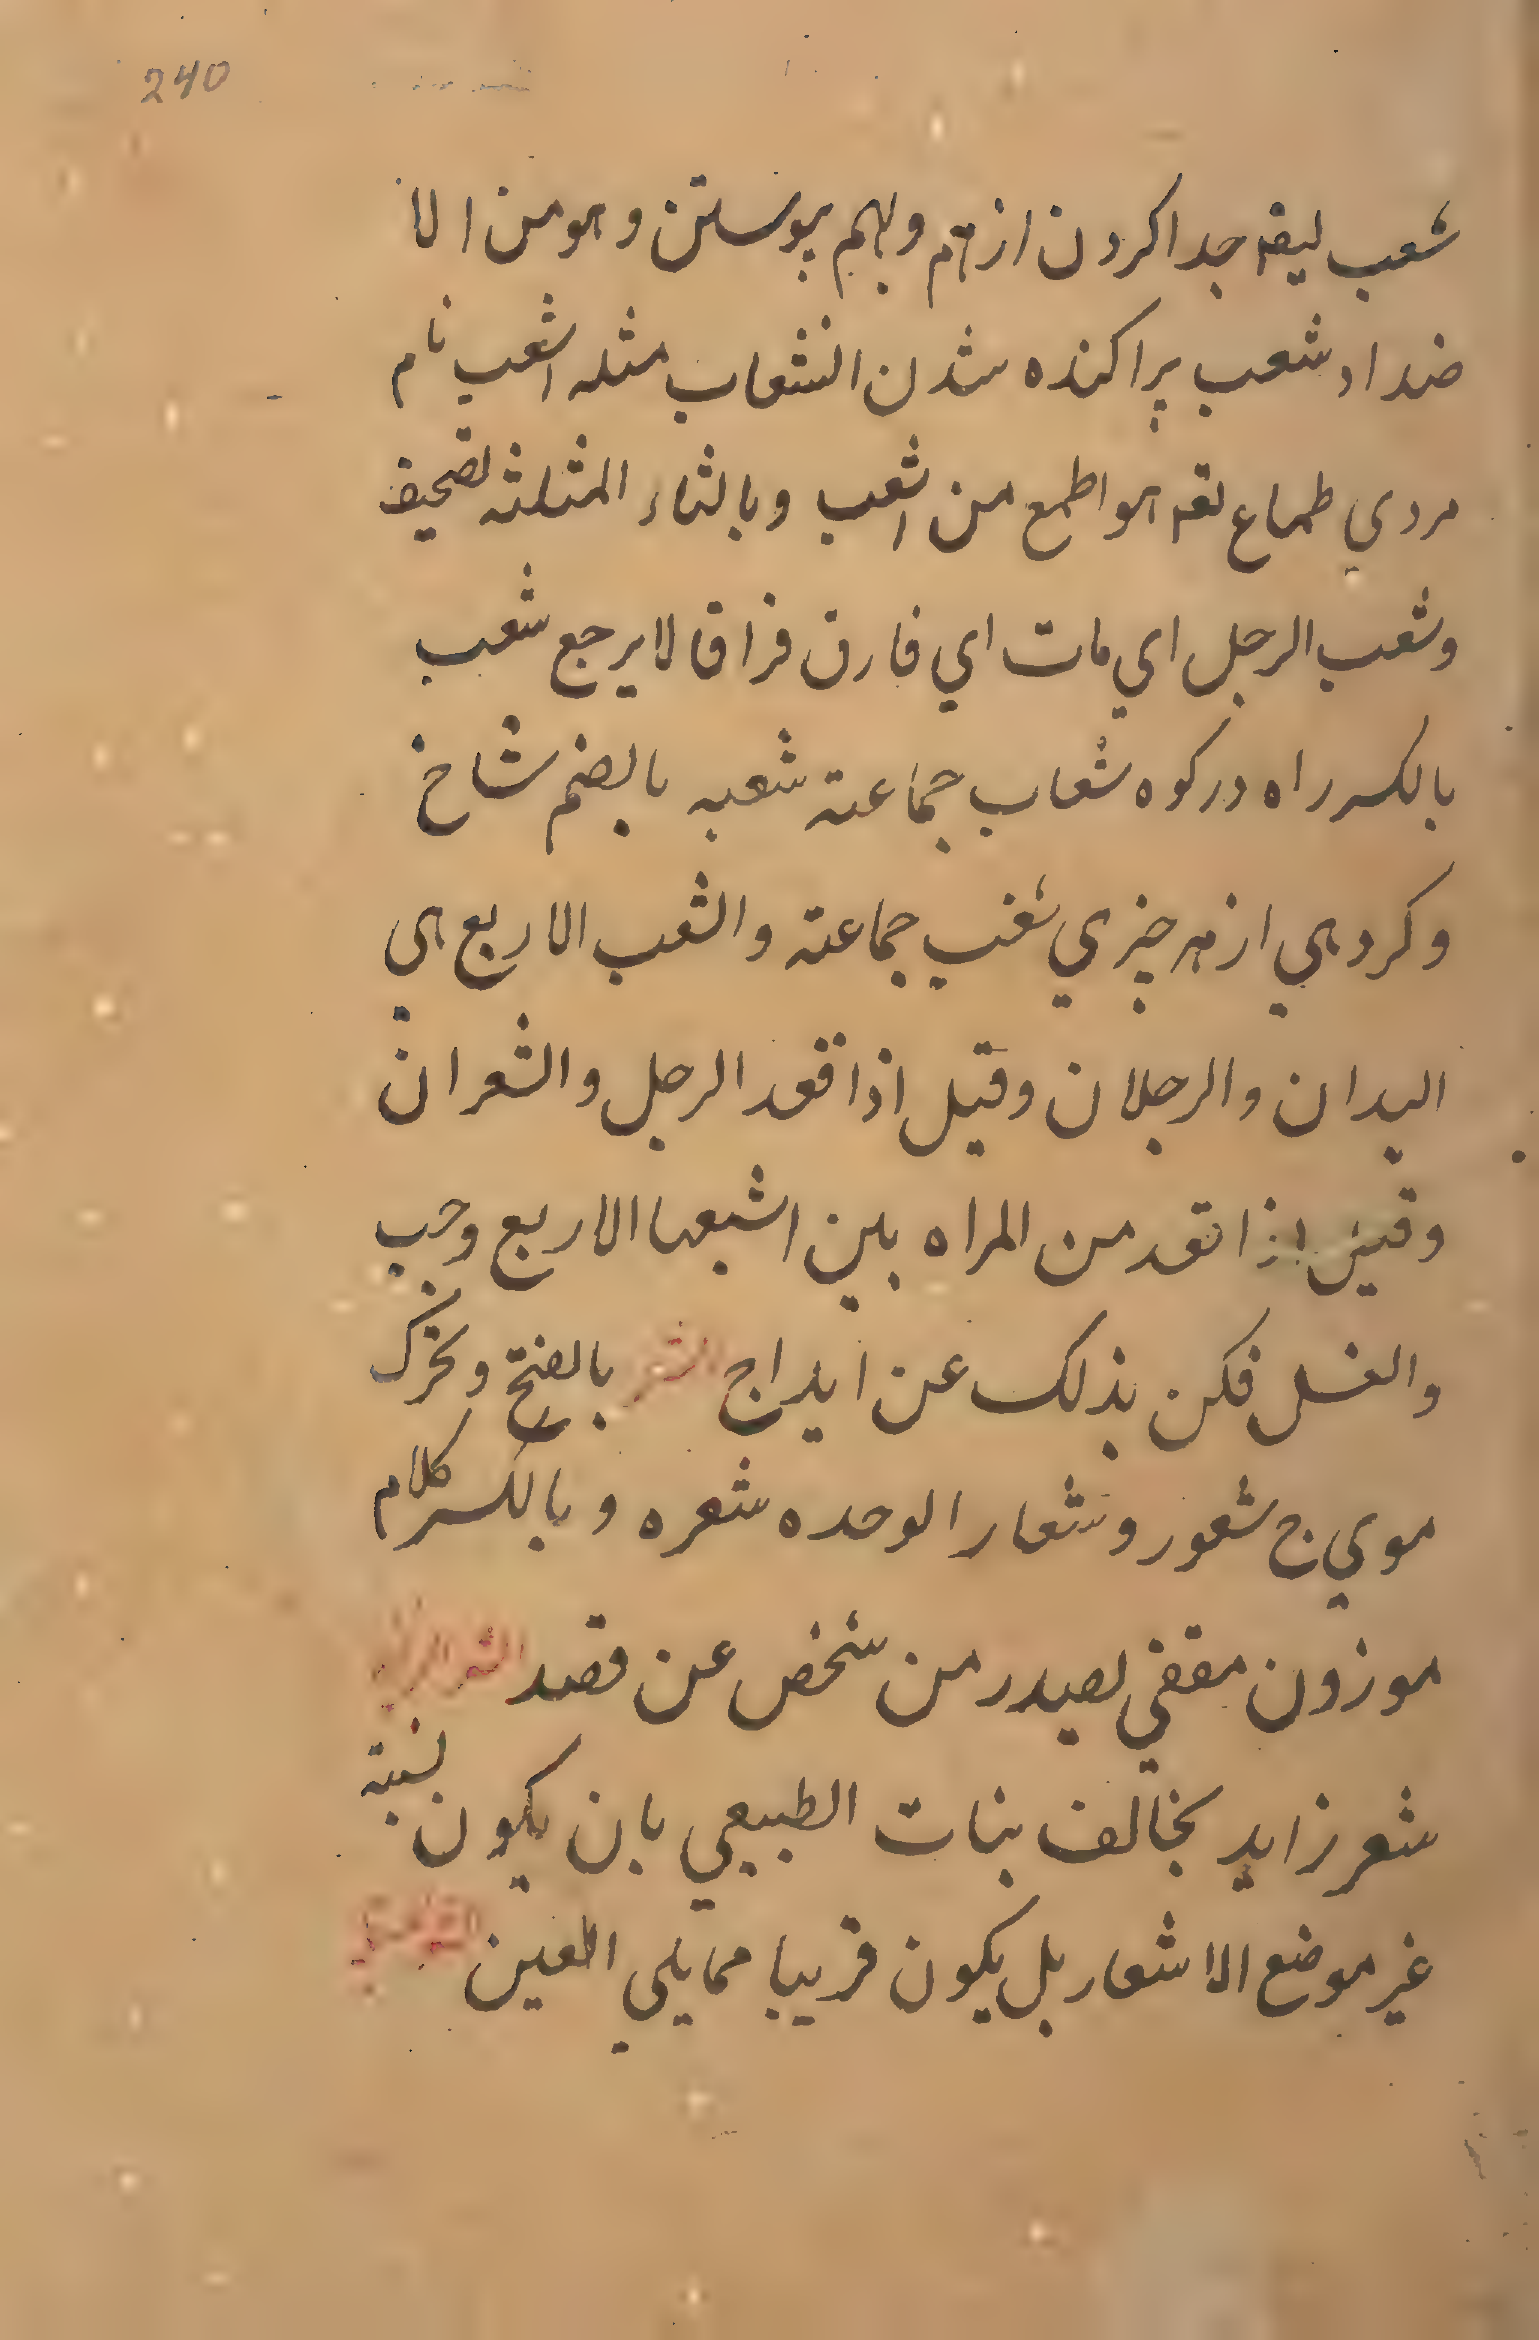 240
شعب لیقہ جدا کردن از ہم و بہم پیوستن و ہو من الا
ضداد شعب پراکندہ شدن انشعاب مثلہ اشعب نام
مردي طماع یقہ ہو اطمع من اشعب و بالثاء المثلثہ تصحیف
وشعب الرجل اي مات اي فارق فراقا لا یرجع شعب
بالکسر راہ در کوہ شعاب جماعتہ شعبہ بالضم شاخ
و کردہي از ہر چیزي شعب جماعتہ والشعب الاربع ہی
الیدان والرجلان وقیل اذا قعد الرجل والشعران
وقیل اذا قعد من المراہ بین اشبعہا الاربع وجب
والغسل فکن بذلک عن ایداج الشعر بالفتح و یحرک
موي ج شعور و شعار الوحدہ شعرہ و بالکسر کلام
موزون مقفي یصدر من شخص عن قصد
شعر زاید یخالف بنات الطبیعي بان یکون نسبتہ
غیر موضع الاشعار بل یکون قریبا مما یلي العین